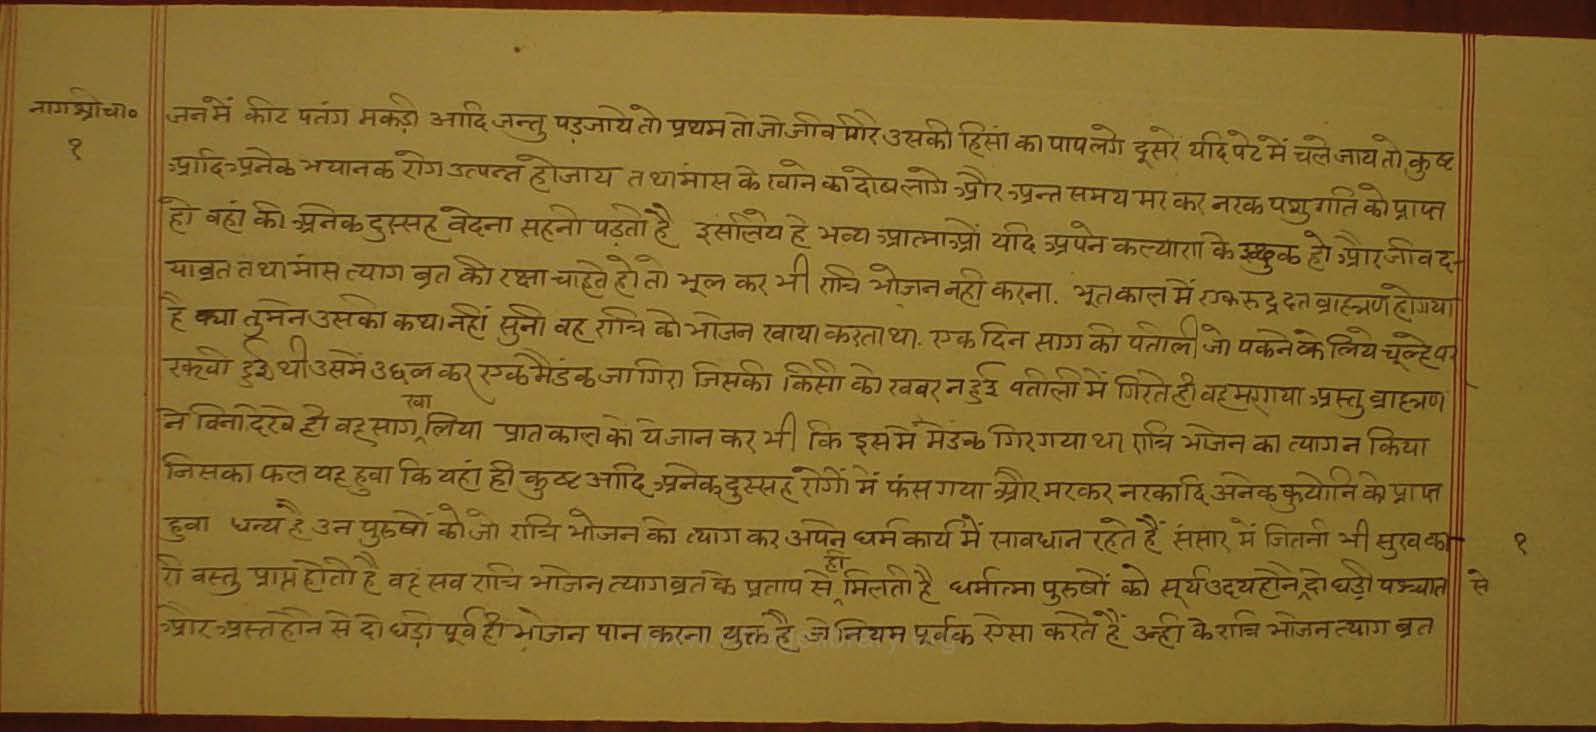 नागश्रीचा०
१
जन में कीट पतंग मकड़ी आदि जन्तु पड़जाये तो प्रथम तो जो जीव गिरे उसकी हिंसा का पाप लगे दूसरे यदि पेट में चले जाय तो कुष्ट
आदि अनेक भयानक रोग उत्पन्न होजाय तथा मांस के खाने का दोष लागे और अन्त समय मर कर नरक पशु गति को प्राप्त
हो वहां की अनेक दुस्सह वेदना सहनी पड़ती है इसलिये हे भव्य आत्माओं यदि अपने कल्याण के इच्छुक हो और जीव द-
याव्रत तथा मांस त्याग व्रत की रक्षा चाहते हो तो भूल कर भी रात्रि भोजन नही करना. भूतकाल में एक रुद्रदत्त ब्राह्मण होगया
है क्या तुमने उसकी कथा नहीं सुनी वह रात्रि को भोजन खाया करता था. एक दिन साग की पतीली जो पकने के लिये चूल्हे पर
रक्खी हुई थी उसमें उछल कर एक मैंडक जा गिरा जिसकी किसी को खबर न हुई पतीली में गिरते ही वह मरगया अस्तु ब्राह्मण
ने बिना देखे ही वह साग खा लिया प्रातकाल को ये जान कर भी कि इसमें मेंडक गिरगया था रात्रि भोजन का त्याग न किया
जिसका फल यह हुवा कि यहां ही कुष्ट आदि अनेक दुस्सह रोगों में फंस गया और मरकर नरकादि अनेक कुयोनि को प्राप्त
हुवा धन्य है उन पुरुषों को जो रात्रि भोजन को त्याग कर अपने धर्म कार्य में सावधान रहते हैं संसार में जितनी भी सुखका-
री वस्तु प्राप्त होती है वह सव रात्रि भोजन त्यागव्रत के प्रताप से ही मिलती है धर्मात्मा पुरुषों को सूर्य उदय होने से दो घड़ी पश्चात
और अस्त होने से दो घड़ी पूर्व ही भोजन पान करना युक्त है जे नियम पूर्वक ऐसा करते हैं उन्ही के रात्रि भोजन त्याग व्रत
१